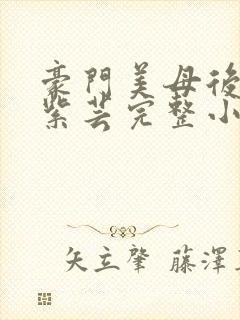 豪門美母後
紫芸完整小
矢立肇 藤澤